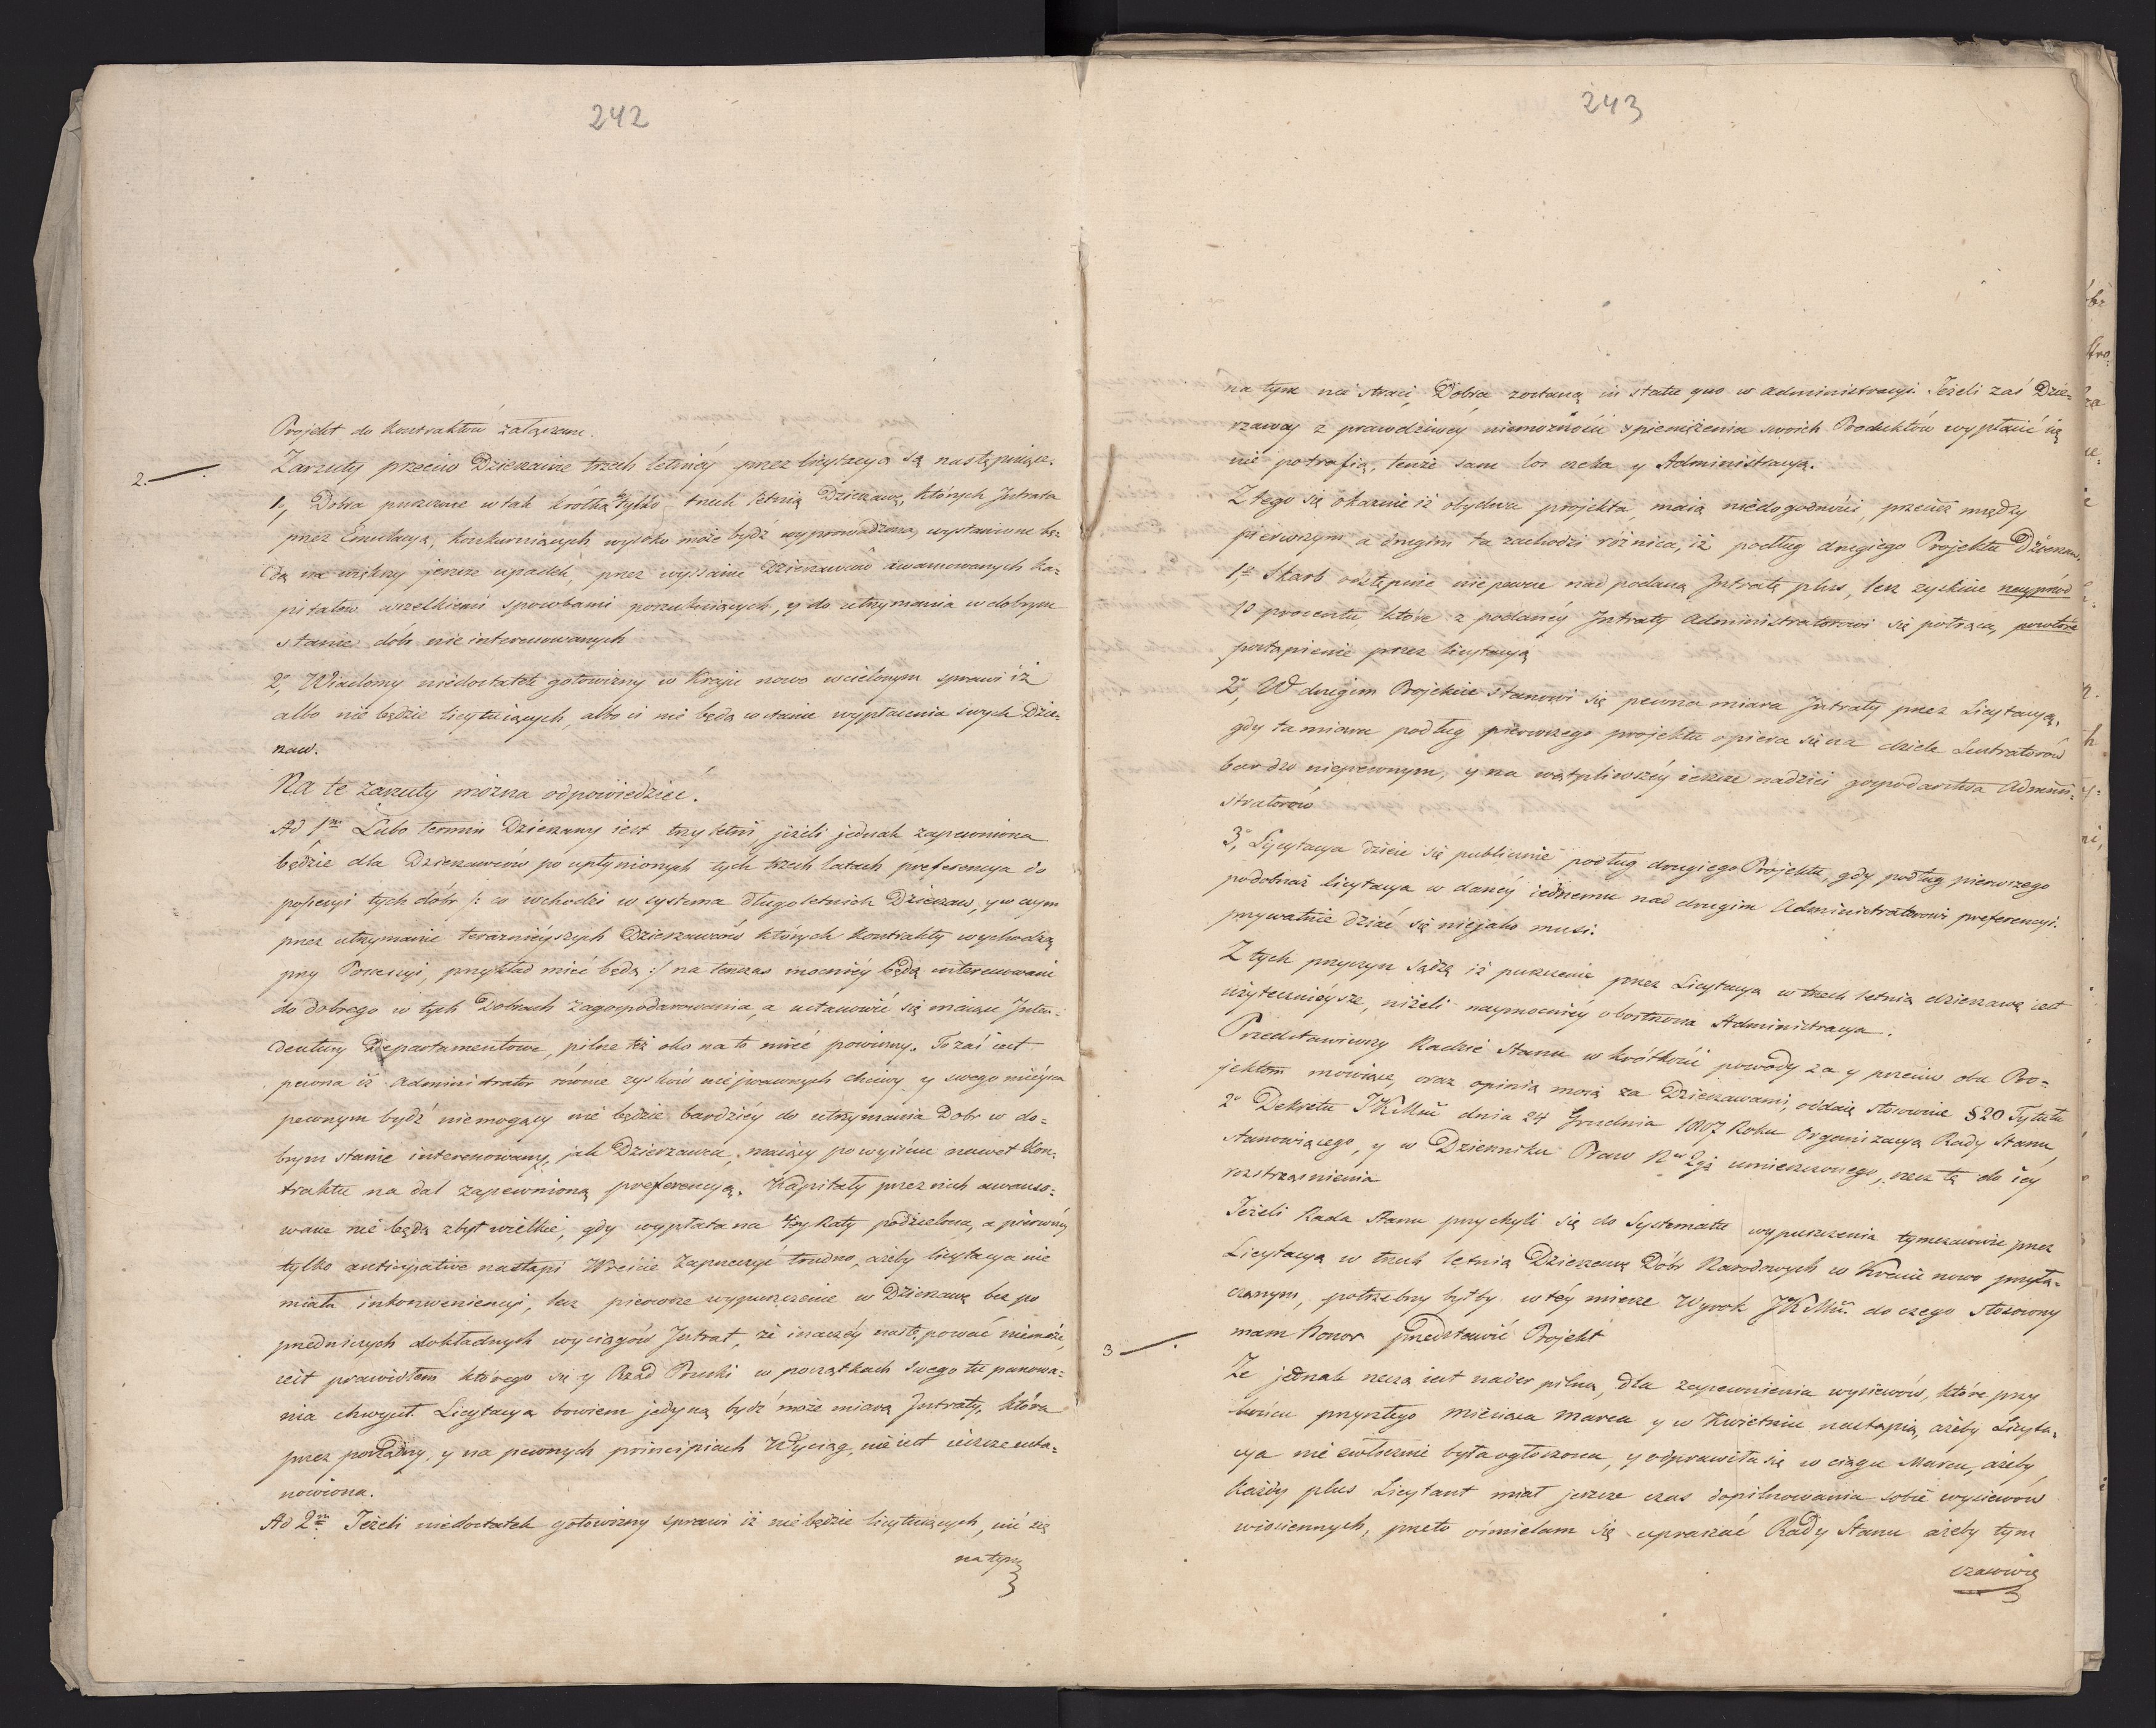 242
Projekt do Kontraktów załączam.
2.
Zarzuty przeciw Dzierzawie trzech letniéy przez licytacyą są następuiące.
1, Dobra puszczone w tak krótką tylko trzech letnią Dzierzawę, których Intrata
przez Emulacyą, konkuruiących wysoko może bydź wyprowadzona, wystawione bę-
dą na większy jeszcze upadek, przez wyssanie Dzierzawców awansowanych ka-
pitałów wszelkiemi sposobami poszukuiących, y do utrzymania w dobrym
stanie dóbr nie interessowanych
2o, Wiadomy niedostatek gotowizny w Kraju nowo wcielonym sprawi iż
albo nie będzie licytuiących, albo ci nie będą w stanie wypłacenia swych Dzie-
rzaw.
Na te zarzuty można odpowiedzieć.
Ad 1m Lubo termin Dzierzawy iest trzy letni, jeżeli jednak zapewniona
będzie dla Dzierzawców po upłynionych tych trzech latach preferencya do
possesyi tych dóbr /: co wchodzi w systema długoletnich Dzierzaw, y w czym
przez utrzymanie teraznieyszych Dzierzawców których Kontrakty wychodzą
przy Possessyi, przykład mieć będą :/ na tenczas mocniéy będą interessowani
do dobrego w tych Dobrach zagospodarowania, a ustanowić się maiące Inten-
dentury Departamentowe, pilne też oko na to mieć powinny. To zaś iest
pewna iż Administrator równie zysków nieprawnych chciwy y swego mieysca
pewnym bydź niemogący nie będzie bardziéy do utrzymania Dobr w do-
brym stanie interesowany, jak Dzierzawca, maiący po wyiściu nawet Kon-
traktu na dal zapewnioną preferencyą. Kapitały przez nich awanso-
wane nie będą zbyt wielkie, gdy wypłata na trzy Raty podzielona, a pierwszy
tylko anticipative nastąpi Wreście zaprzeczyć trudno, ażeby licytacya nie
miała inkonweniencyi, lecz pierwsze wypuszczenie w Dzierzawę bez po
przedniczych dokładnych wyciągów Intrat, że inaczéy następować niemoże,
iest prawidłem którego się y Rząd Pruski w początkach swego tu panowa-
nia chwycił. Licytacya bowiem jedyną bydź może miarą Intraty, która
przez porządny, y na pewnych principiach Wyciąg, nie iest ieszcze usta-
nowiona.
Ad 2m Jeżeli niedostatek gotowizny sprawi iż nie będzie licytuiących, nic się
na tym
243
na tym nie straci, Dobra zostaną in statu quo w administracyi. Jeżeli zaś Dzie-
rzawcy z prawdziwéy niemożności spieniężenia swoich Produktów wypłacić się
nie potrafią, tenże sam los czeka y Administracyą.
Z tego się okazuie iż obydwa projekta maią niedogodności, przecież między
pierwszym a drugim ta zachodzi różnica, iż podług drugiego Projektu Dzierzaw.
1o Skarb odstępuie niepewne nad podaną Intratę plus, lecz zyskuie nayprzód
10 procentu które z podanéy Intraty Administratorowi się potrąca, powtóre
postąpienie przez licytacyą
2o, W drugim Projekcie stanowi się pewna miara Intraty przez Licytacyą,
gdy ta miara podług pierwszego projektu opiera się na dziele Lustratorów
bardzo niepewnym, y na wątpliwszéy ieszcze nadziei gospodarstwa Admini-
stratorów
3o, Licytacya dzieie się publicznie podług drugiego Projektu, gdy podług pierwszego
podobnaż licytacya w danéy iednemu nad drugim Administratorowi preferencyi
prywatnie dziać się niejako musi.
Z tych przyczyn sądzę iż puszczenie przez Licytacyą w trzech letnią dzierzawę iest
użytecznieysze, niżeli naymocniéy obostrzona Administracya.
Przedstawiwszy Radzie Stanu w krótkości powody za y przeciw obu Pro-
jektom mówiące, oraz opinią moią za Dzierzawami, oddaię stosownie § 20 Tytułu
2o Dekretu JKMci dnia 24 Grudnia 1807 Roku Organizacyą Rady Stanu
stanowiącego, y w Dzienniku Praw umieszczonego, rzecz tę do iéy
rozstrząśnienia
Jeżeli Rada Stanu przychyli się do Systematu wypuszczenia tymczasowie przez
Licytacyą w trzech letnią Dzierzawę Dóbr Narodowych w Kraiu nowo przyłą-
czonym, potrzebny byłby w téy mierze Wyrok JKMci do czego stosowny
3
mam Honor przedstawić Projekt
Ze jednak rzecz iest nader pilna, dla zapewnienia wysiewów, które przy
końcu przyszłego Miesiąca Marca y w Kwietniu nastąpią, ażeby Licyta-
cya nie zwłocznie była ogłoszona, y odprawiła się w ciągu Marca, ażeby
Każdy plus Licytant miał jeszcze czas dopilnowania sobie wysiewów
wiosiennych, przeto ośmielam się upraszać Rady Stanu ażeby tym
czasowie